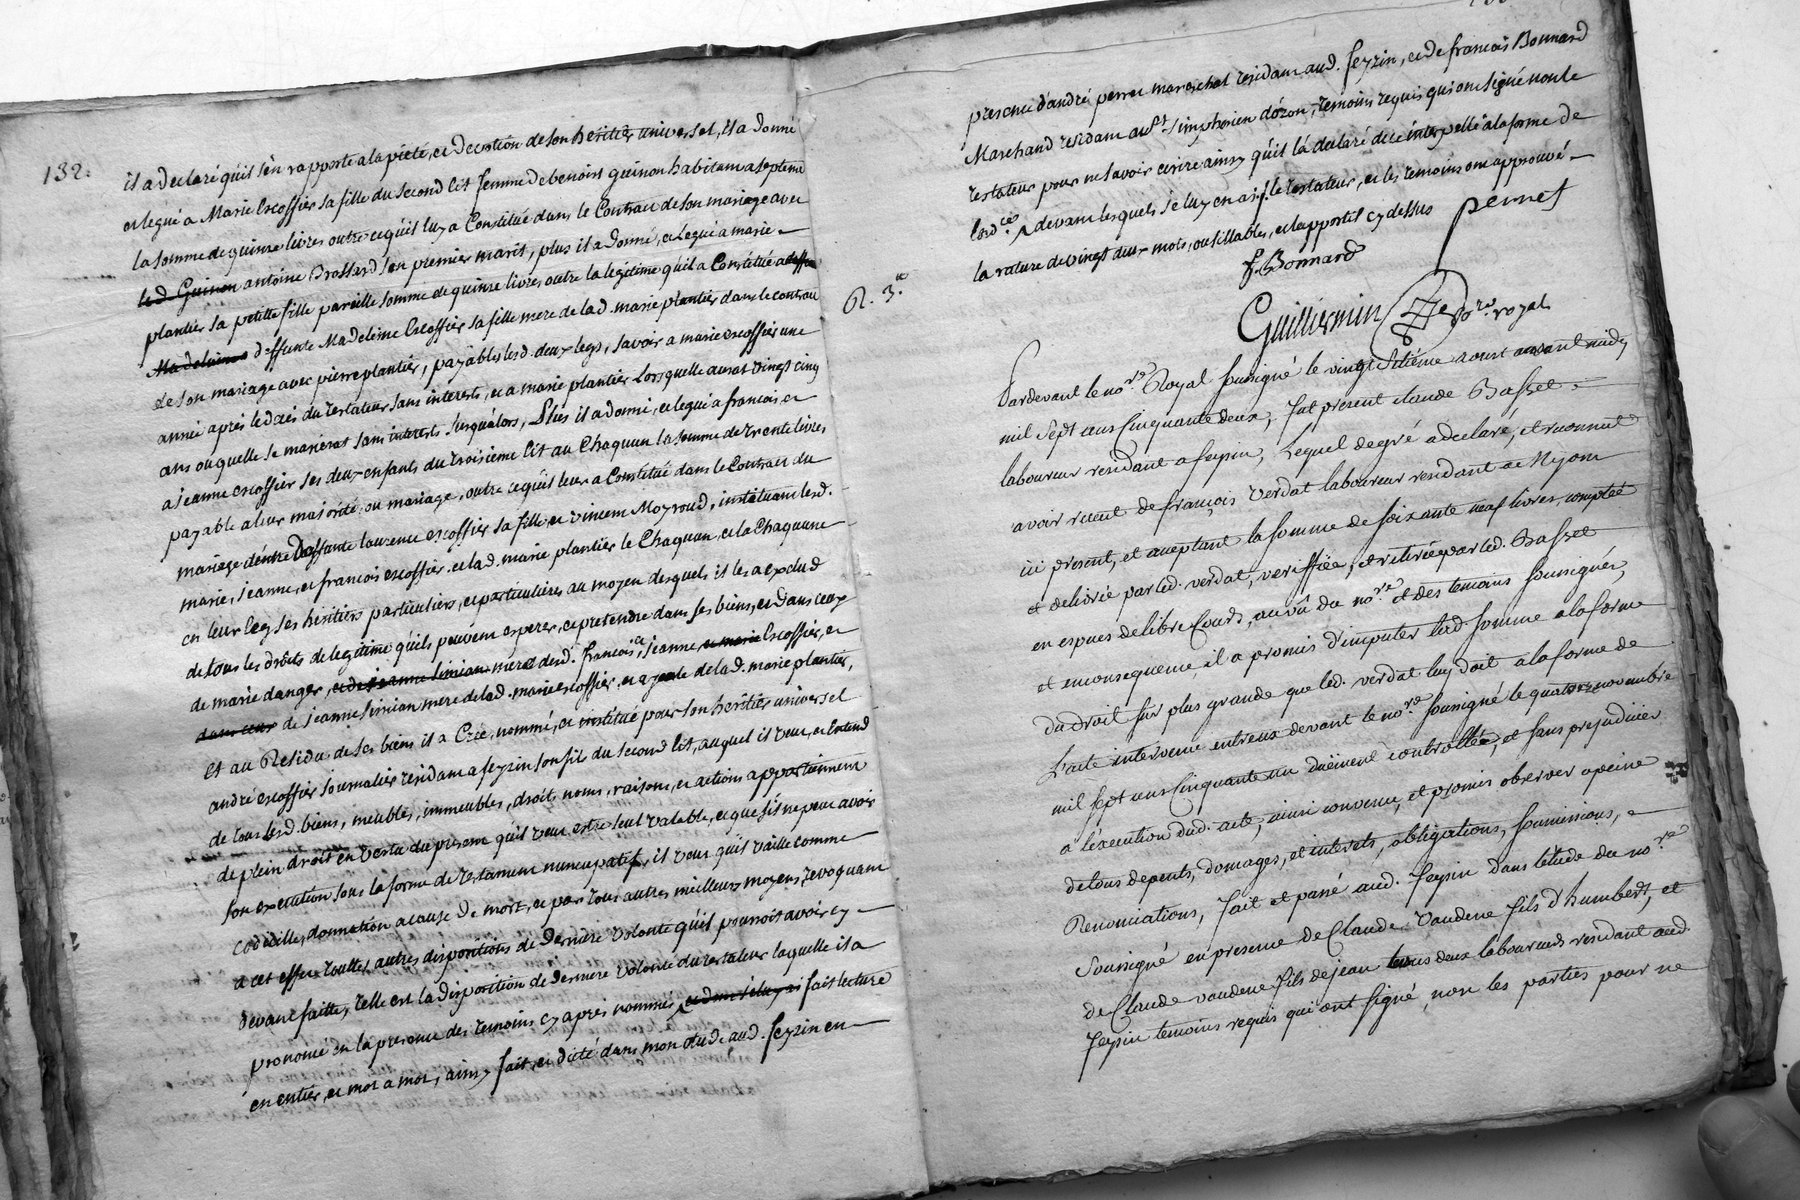 132.
il a declaré qu'il s'en rapporte a la pieté, et devotion de son heritier universel, il a donné
et legué a Marie Escoffier sa fille du second lit femme de benoist guinon habitant a septeme
la somme de quinze livres outre ce qu'il luy a Constitué dans le Contract de son mariage avec
led. Guinon antoine Brossard son premier marit, plus il a donné, et Legué a marie
plantier sa petitte fille pareille somme de quinze livres outre la legitime qu'il a Constitué a deffu
Madelaine deffunte Madeleine Escoffier sa fille mere de lad. marie plantier dans le contract
de son mariage avec pierre plantier, payables lesd. deux legs, savoir a marie escoffier une
année après le decés du testateur sans interets, et a marie plantier Lorsquelle aurat vingt cinq
ans ou quelle se marierat sans interets jusqu'alors, Plus il a donné, et legué a francois, et
a jeanne escoffier ses deux enfants du troisieme lit au Chaquun la somme de trente livres
payable a leur majorité, ou mariage, outre ce qu'il leur a Constitué dans le Contract du
mariage d'entre deffunte laurence escoffier sa fille, et vincent Moyroud, instituant lesd.
marie, jeanne, et francois escoffier, et lad. marie plantier le Chaquun, et la Chaquune
en leur leg ses heritiers particuliers, et particulieres au moyen desquels il les a exclud
de tous les droits de legitime qu'ils peuvent esperer, et pretendre dans ses biens, et dans ceux
de marie danger, et de jeanne simian mere desd. francois, jeanne, et marie Escoffier, et
dans ceux de jeanne simian mere de lad. marie escoffier, et ayeule de lad. marie plantier,
et au Residu de ses biens il a Créé, nommé, et institué pour son heritier universel
andré escoffier journalier residant a feyzin son fils du second lit, auquel il veut, et Entend
de tous lesd. biens, meubles, immeubles, droits, noms, raisons, et actions appartiennent
de plein droit en vertu du present qu'il veut estre seul valable, et que s'il ne peut avoir
son execution sous la forme de testament nuncupatif, il veut qu'il vaille comme
codicille, donnation a cause de mort, et par tous autres meilleurs moyens, revoquant
a cet effect touttes autres dispositions de derniere volonté qu'il pourroit avoir cy
devant faitte, telle est la disposition de derniere volonté du testateur laquelle il a
prononcé en la presence des temoins cy après nommés, fait lecture
en entier, et mot a mot, ainsy fait, et dicté dans mon etude aud. feyzin en
presence d'andré perret mareschal residant aud. feyzin, et de francois Bonnard
Marchand residant au St. simphorien d'ozon, temoins requis qui ont signé non le
testateur pour ne savoir ecrire ainsy qu'il l'a declaré de ce interpellé a la forme de
lord.ce, devant lesquels le testateur, et les temoins ont approuvé
la rature de vingt deux mots, ou sillables, et l'apostil cy dessus
perret
f. Bonnard
Guilliermin no.re royal
R. 3.
Pardevant le no.re Royal soussigné le vingt setiême aoust avant midy
mil sept cens Cinquante deux, fut present claude Basset
laboureur residant a feyzin, Lequel de gré a declaré, et reconnut
avoir receut de françois verdat laboureur residant a
ici present, et aceptant la somme de soixante neuf livres, comptée
et delivrée par led. verdat, veriffiée, et retirée par led. Basset
en especes de libre Cours, au vû du no.re et des temoins soussignés,
et en consequence, il a promis d'imputer lad somme a la forme
du droit sur plus grande que led. verdat luy doit a la forme de
L'acte intervenu entreux devant le no.re soussigné le quatorze novembre
mil sept cens Cinquante un duëment controllée, et sans prejudicier
a l'execution dud. acte, ainsi convenu, et promis observer a peine
de tous depents, domages, et interets, obligations, soumissions,
Renonciations, fait et passé aud. feysin dans l'etude du no.re
soussigné en presence de Claude vaudene fils d'humbert, et
de Claude vaudene fils de jean tous deux laboureurs residant aud.
feysin temoins requis qui ont signé, non les parties pour ne